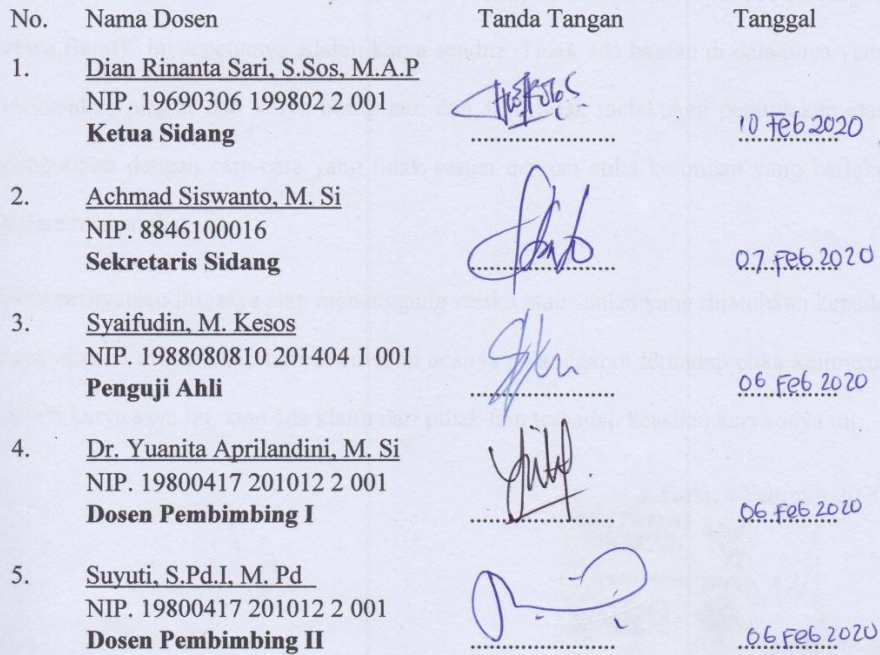 No. Nama Dosen Tanda Tangan Tanggal
1. Dian Rinanta Sari, S.Sos, M.A.P
NIP. 19690306 199802 2 001
Ketua Sidang 10 Feb 2020
2. Achmad Siswanto, M. Si
NIP. 8846100016
Sekretaris Sidang 07 Feb 2020
3. Syaifudin, M. Kesos
NIP. 1988080810 201404 1 001
Penguji Ahli 06 Feb 2020
4. Dr. Yuanita Aprilandini, M. Si
NIP. 19800417 201012 2 001
Dosen Pembimbing I 06 Feb 2020
5. Suyuti, S.Pd.I, M. Pd
NIP. 19800417 201012 2 001
Dosen Pembimbing II 06 Feb 2020